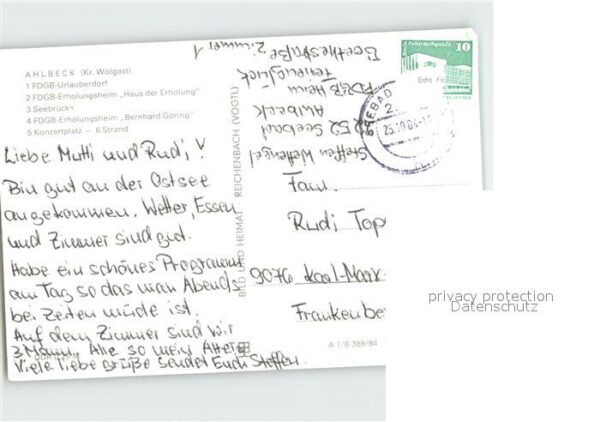 AHLBECK (Kr. Wolgast)
1 FDGB-Urlauberdorf
2 FDGB-Erholungsheim „Haus der Erholung"
3 Seebrücke
4 FDGB-Erholungsheim „Bernhard Göring"
5 Konzertplatz – 6 Strand
Liebe Mutti und Rudi !
Bin gut an der Ostsee
angekommen. Wetter, Essen
und Zimmer sind gut.
Habe ein schönes Programm
am Tag so das man Abends
bei Zeiten müde ist.
Auf dem Zimmer sind wir
3 Mann. Alle so mein Alter.
Viele liebe Grüße sendet Euch Steffen.
BILD UND HEIMAT REICHENBACH (VOGTL)
Steffen Wettengel
2252 Seebad
Ahlbeck
FDGB Heim
Ferienglück
Goethestraße Zimmer 1
10
SEEBAD
Fam.
Rudi
9076 Karl-Marx-
Frankenbe
A 1/B 389/84
privacy protection
Datenschutz